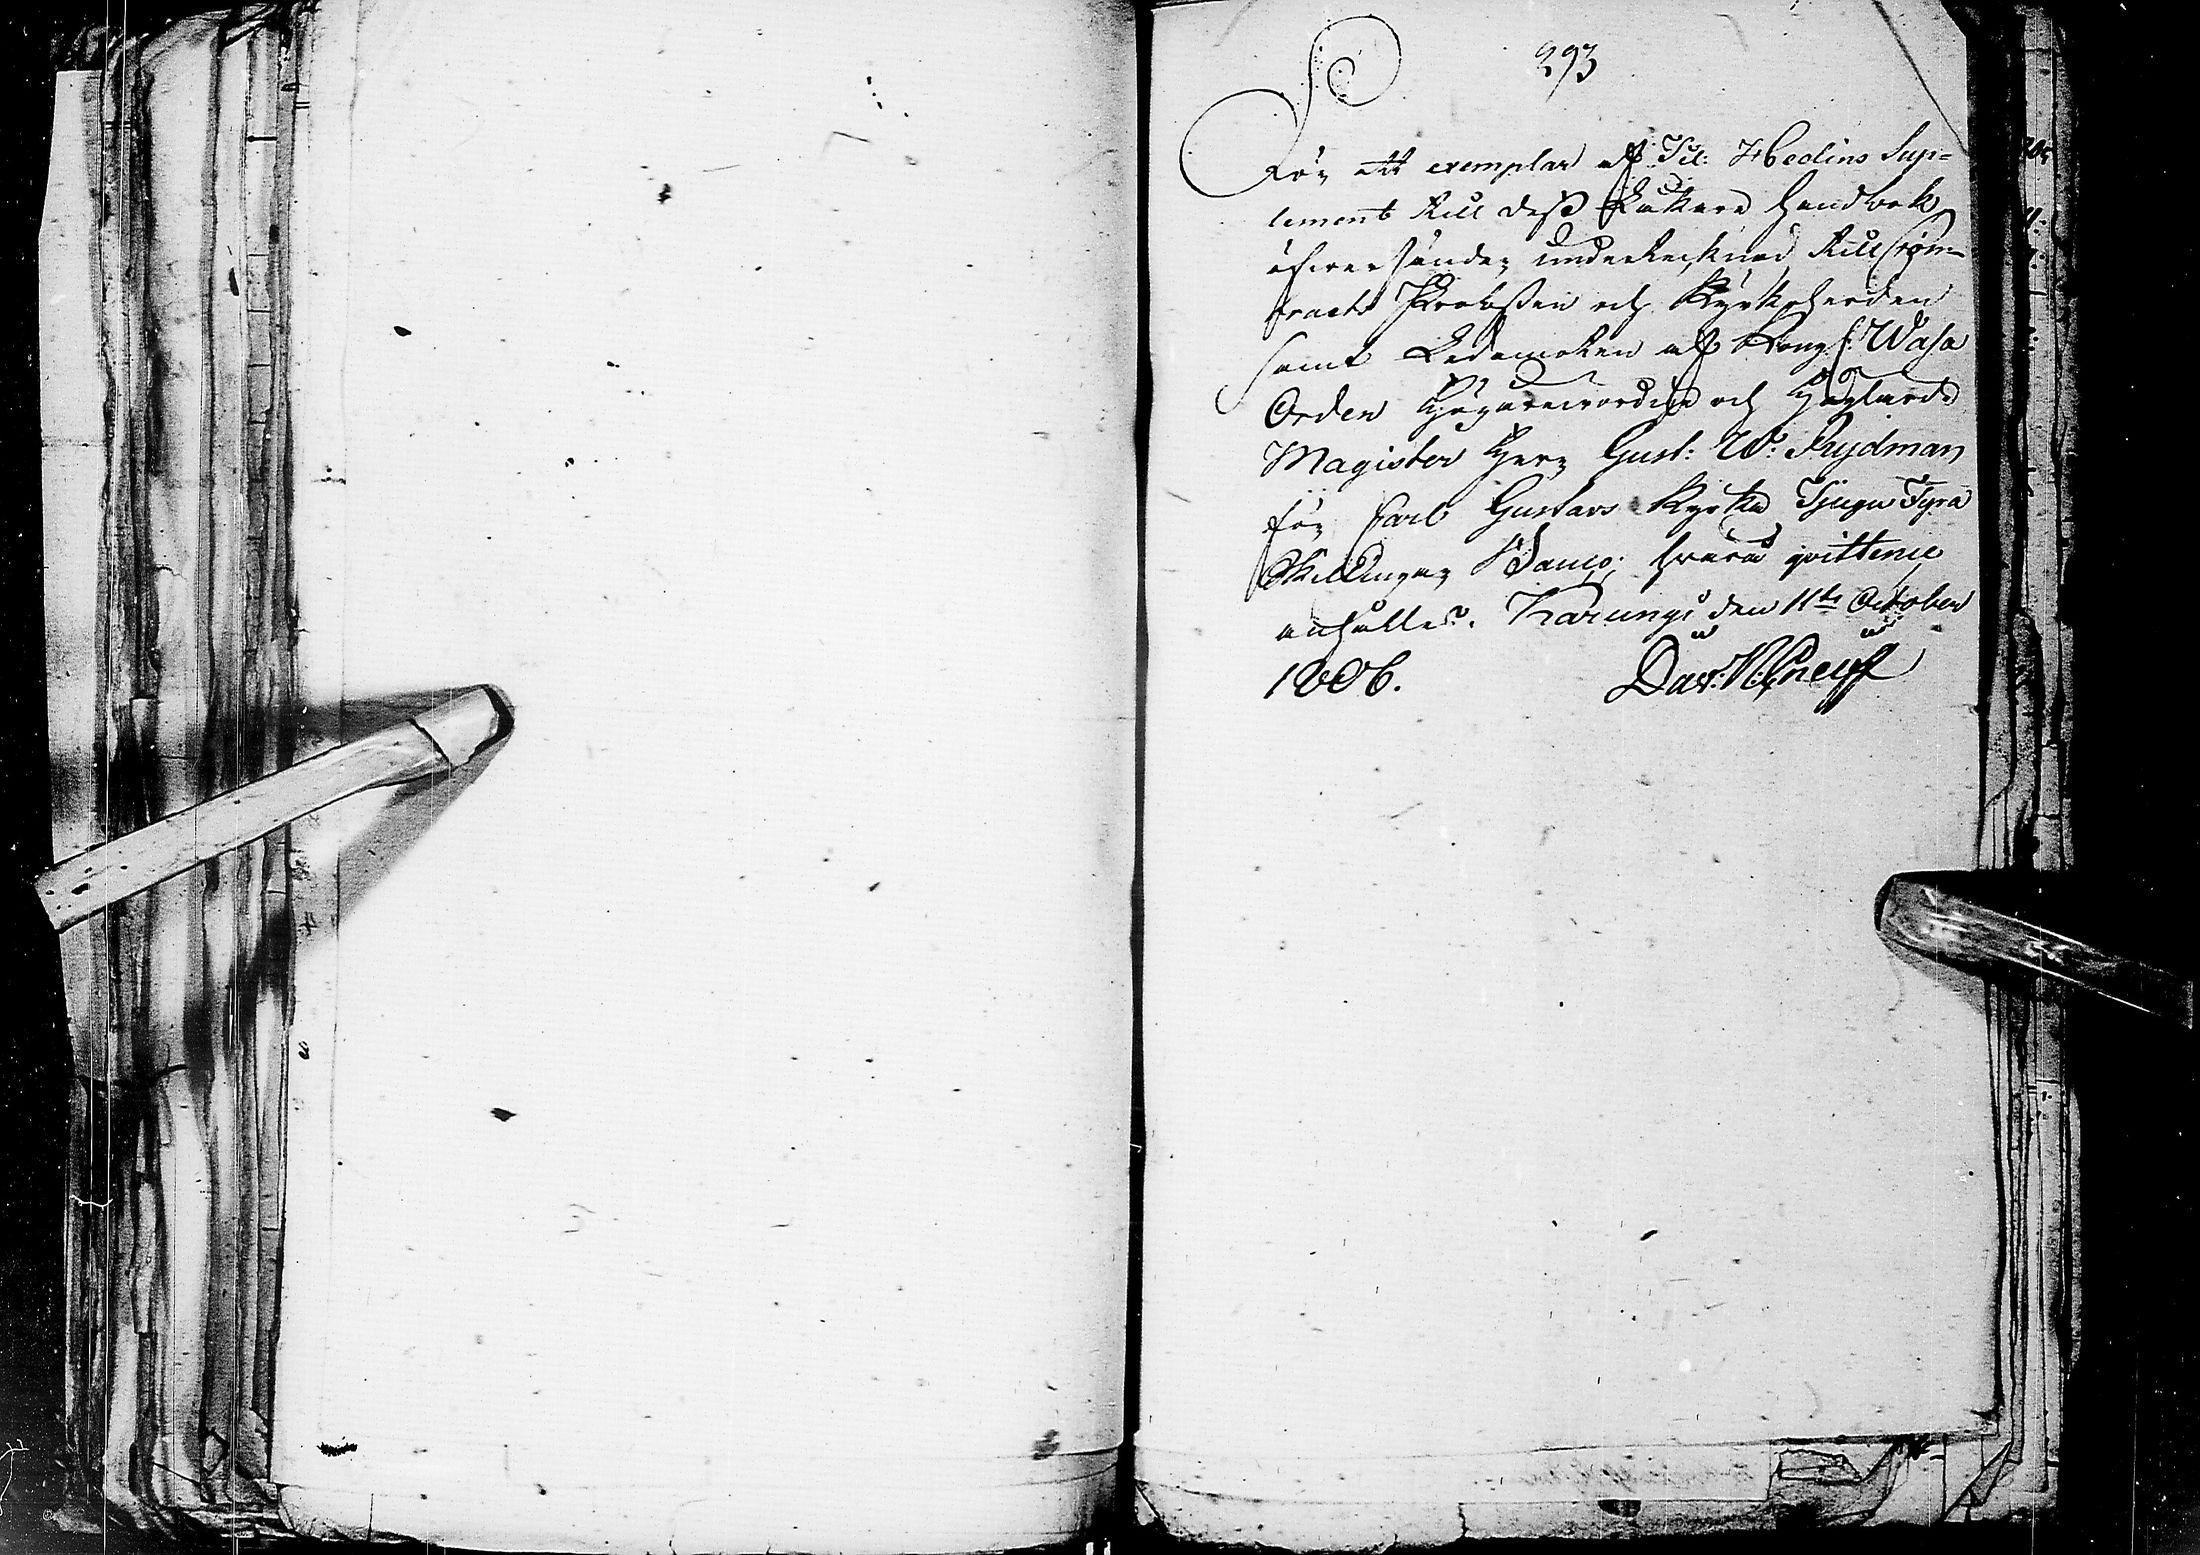 293
För ett exemplar af Tit: Hedins Sup=
lement till dess Läkare Handbok
öfversänder undertecknad till Con-
tracts Probsten och Kyrkoherden
samt Ledamoten af Kongl: Wasa
Orden Högärevördige och Höglärde
Magister Herr Gust: W: Rydman
för Carl Gustavs Kyrka Tjugu Fyra
Skillingar Banco; hvarå qvittence
anhålles. Karungi den 11te October
1806.
Dav: N: Pneiff